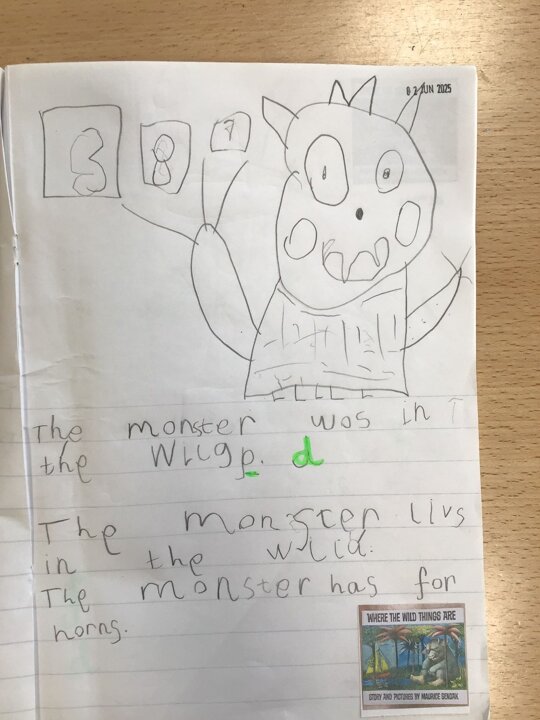 02 JUN 2025
S 8 7
The monster wos in T
the Wilgp. d
The monster livs
in the wlid.
The monster has for
horns.
WHERE THE WILD THINGS ARE
STORY AND PICTURES BY MAURICE SENDAK